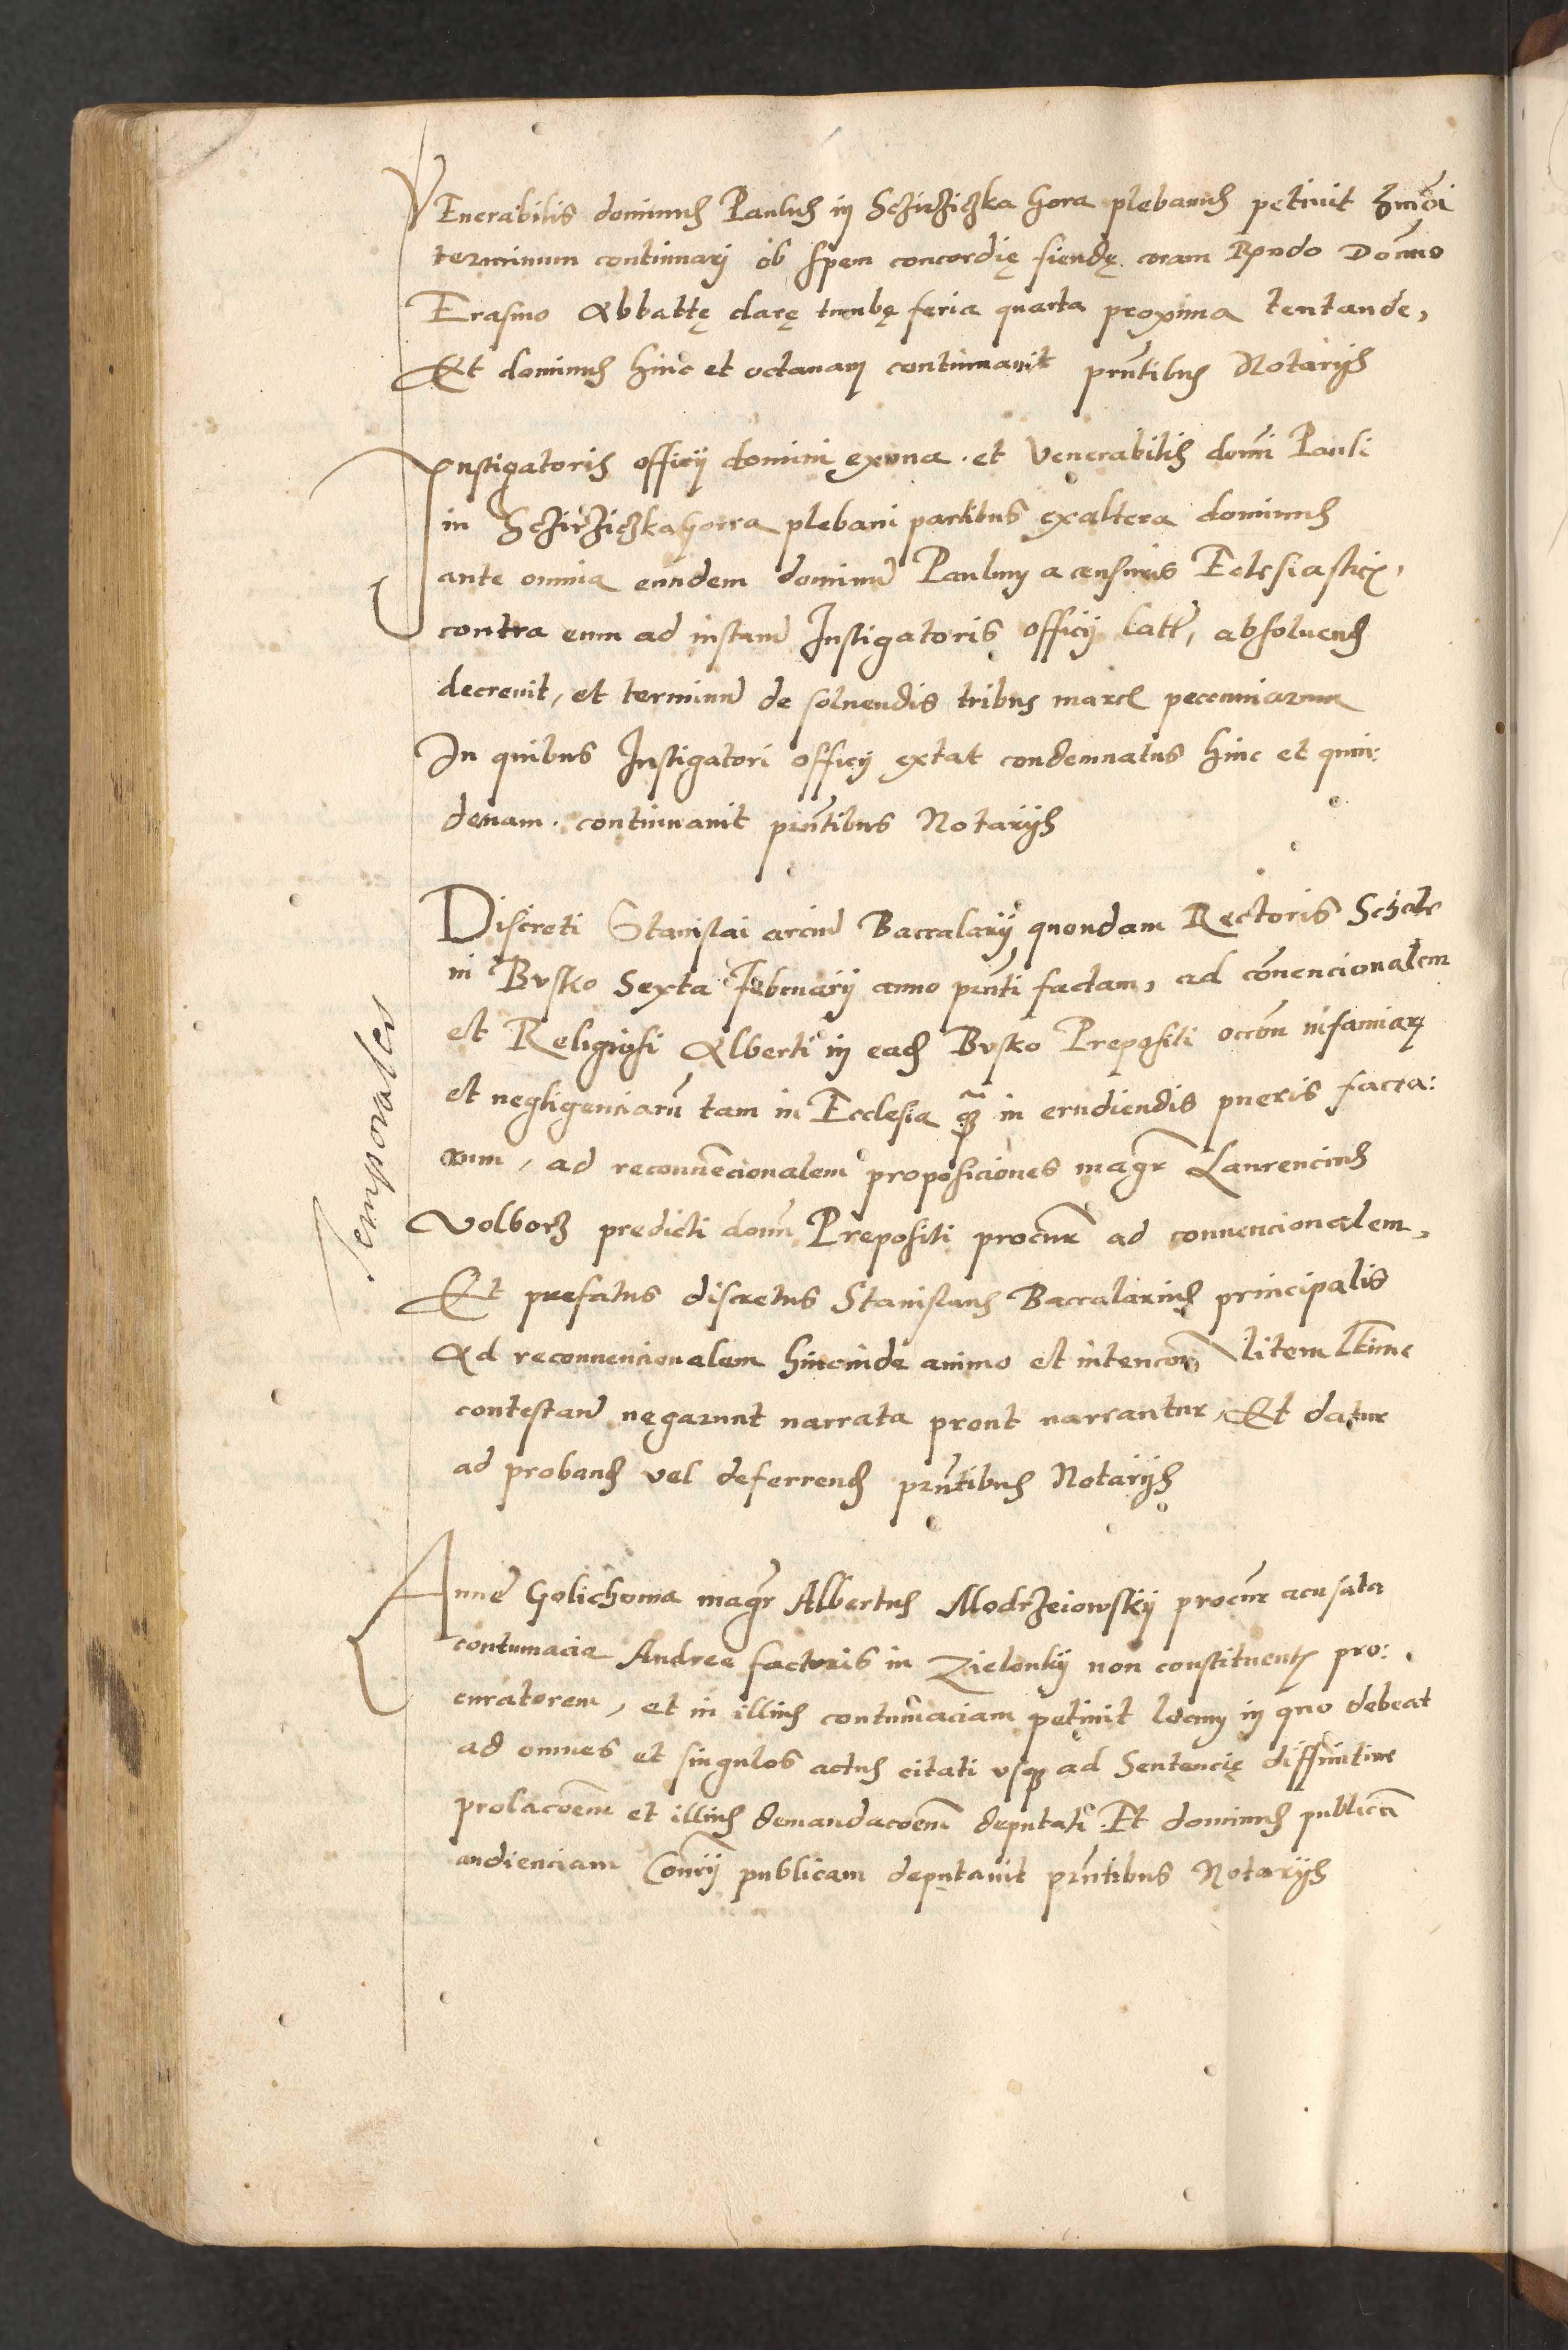 VEnerabilis dominus Paulus in SchirzichkaGora plebanus petivit hmoi
terminum continuari ob spem concordię fiendę coram Rndo Domno
Erasmo Abbattę clarę tumbę feria quarta proxima tentande,
Et dominus hinc et octavam continuavit pntibus Notarijs
Instigatoris officij domini exuna et Venerabilis domni Pauli
in SchirzichkaGorra plebani partibus exaltera dominus
ante omnia eundem dominum Paulum a censuris Eclesiasticis,
contra eum ad instanc Instigatoris officij latis, absolvend
decrevit, et terminum de solvendis tribus marcis peccuniarum
In quibus Instigatori officij extat condemnatus hinc et quin:
denam. continuavit pntibus Notarijs
Temporales
Discreti Stanislai arcium Baccalarij quondam Rectoris Schole
in Busko Sexta Februarij anno pnti factam, ad convencionalem
et Religiosi Alberti in ead Busko Prepositi occone infamiarum
et negligenciarum tam in Ecclesia quam in erudiendis pueris facta:
rum, ad reconvencionalem proposiciones magr Laurencius
Volborz predicti domni Prepositi procur ad convencionalem,
Et prefatus discretus Stanislaus Baccalarius principalis
Ad reconvencionalem hincinde animo et intencone litem ltime
contestand negarunt narrata prout narrantur, Et datur
ad proband vel deferrend pntibus Notarijs
Anne Golichowa magr Albertus Modrzeiowskij procur acusata
contumacia Andree factoris in Zielonky non constituentis pro:
curatorem, et in illius contumaciam petivit locum in quo debeat
ad omnes et singulos actus citati usque ad Sentencię diffinitive
prolacoem et illius demandacoem deputati. Et dominus publica
audienciam Consrij publicam deputavit pntibus Notarijs